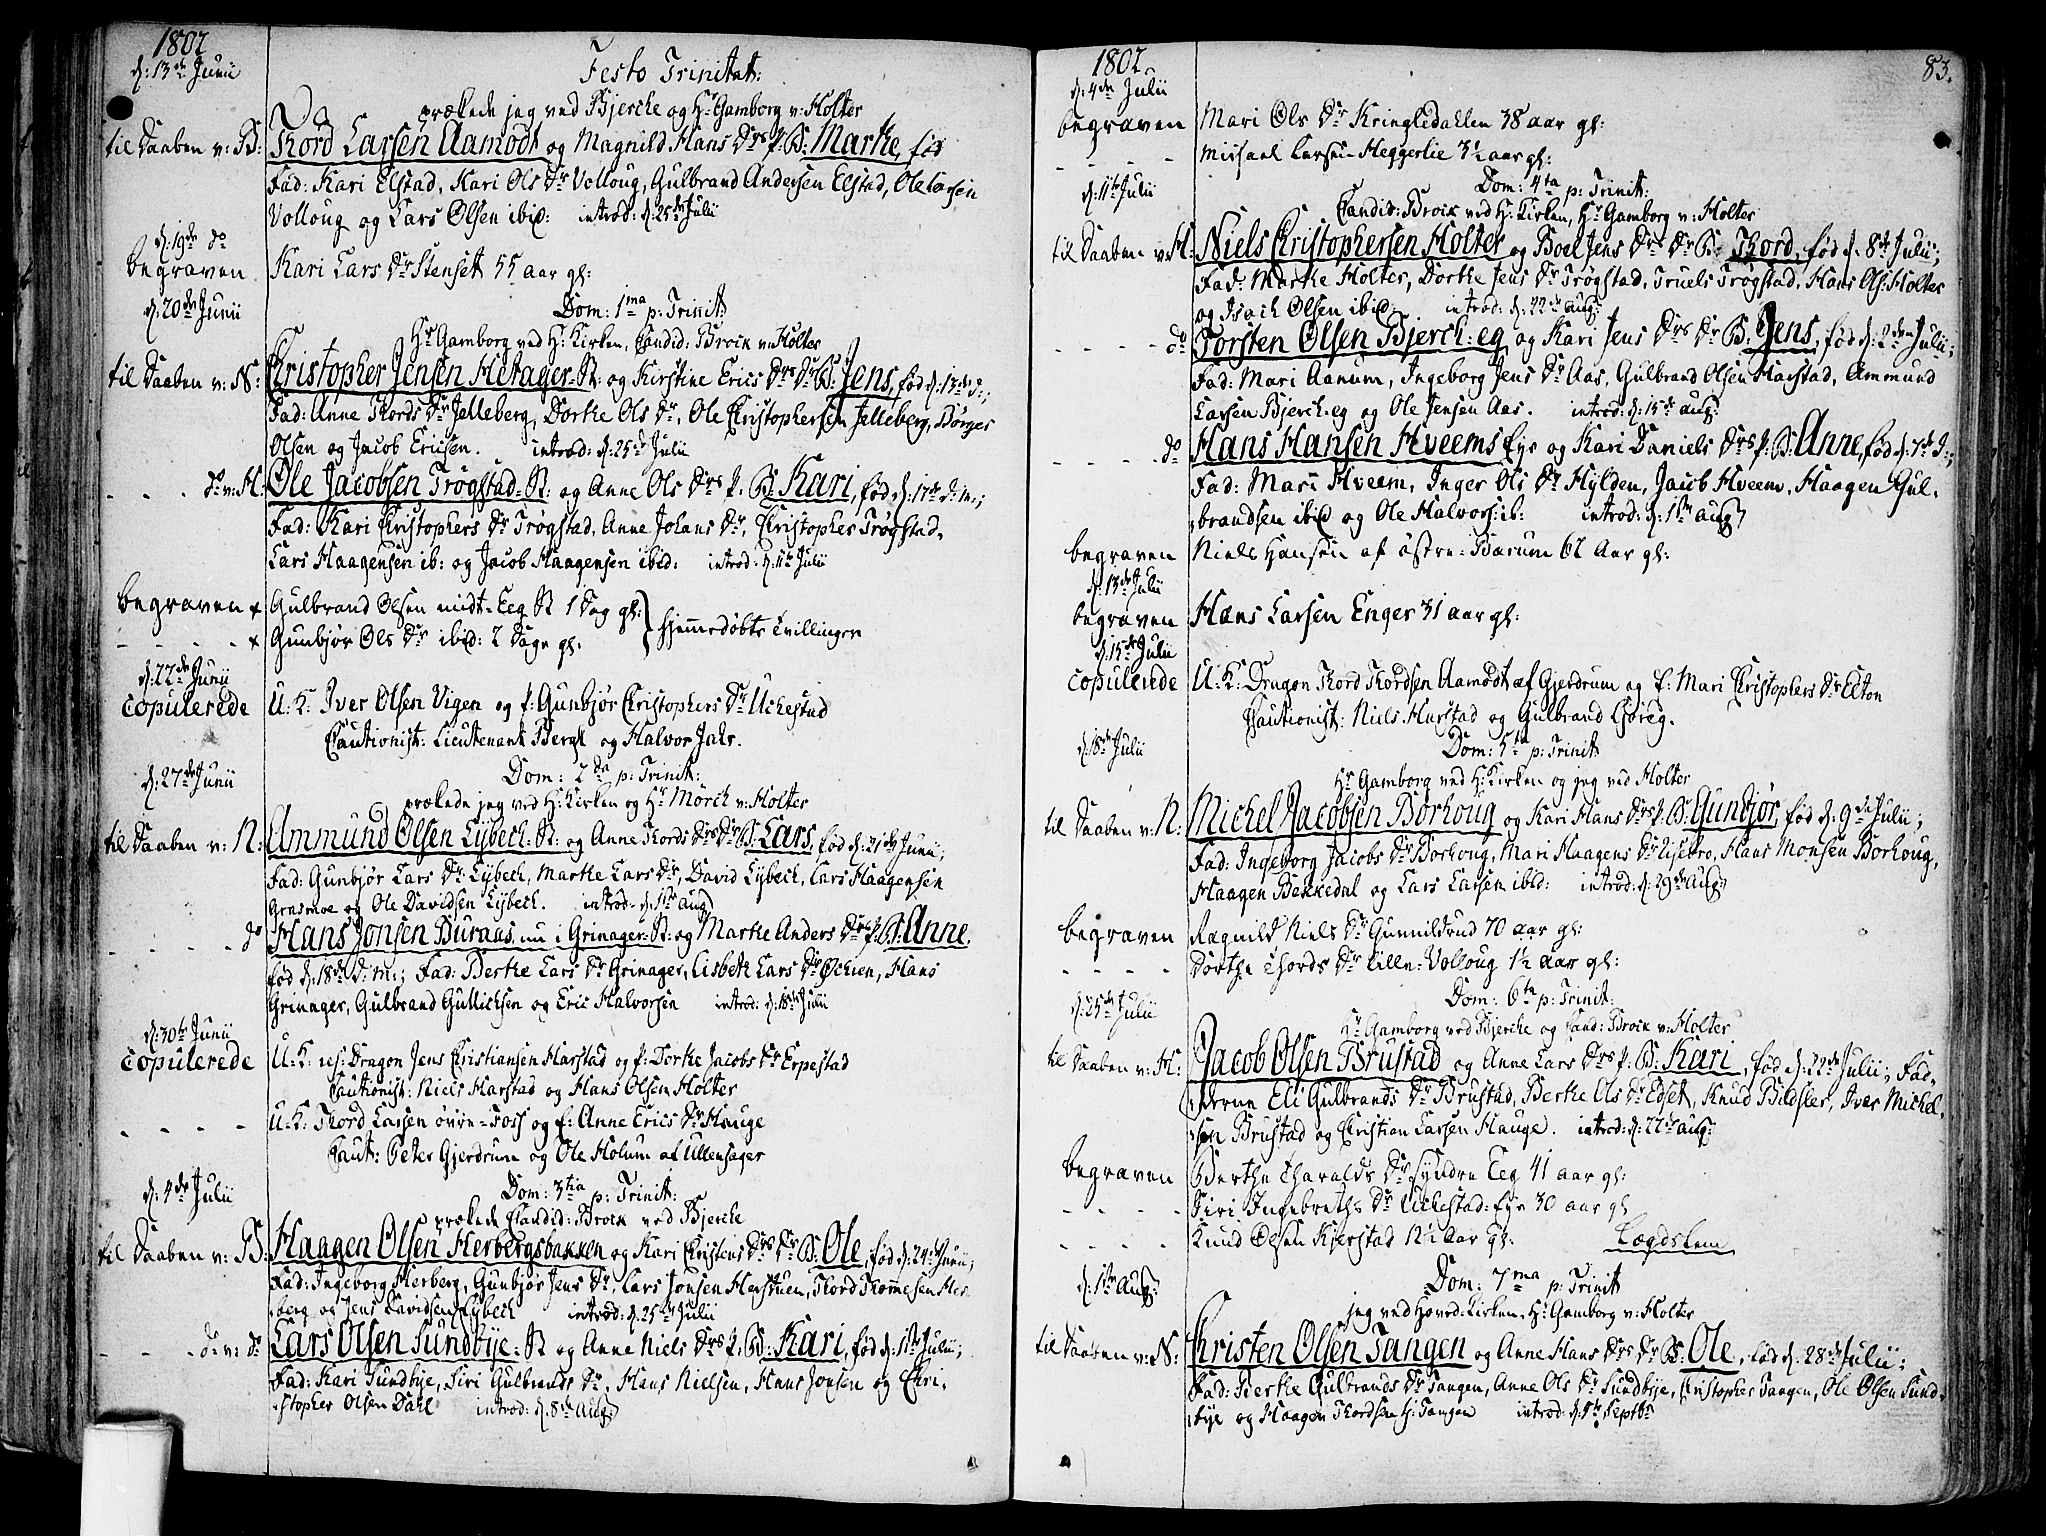 1802
d: 13de Junii
Festo Trinitat:
prækede jeg ved Bjerche og Hr Gamborg v: Holter
til Daaben v: B: Thord Larsen Aamodt og Magnild Hans Drs P. B: Marthe, fød
Fad: Kari Elstad, Kari Ols Dr Volloug, Gulbrand Andersen Elstad, Ole Larsen
Volloug og Lars Olsen ibid: introd: d: 25de Julii
d: 19de do
begraven Kari Lars Dr Stenset 55 aar gl:
d: 20de Junii
Dom: 1ma p: Trinit:
Hr Gamborg ved H: Kirken, Candid: Brock v: Holter
til Daaben v: N: Christopher Jensen Hetager-St: og Kirstine Erics Drs Dr B: Jens, fød d: 13de
Fad: Anne Thords Dr Jelleberg, Dorthe Ols Dr, Ole Christophersen Jelleberg, Børges
Olsen og Jacob Ericsen. introd: d: 25de Julii
- - - do v: H: Ole Jacobsen Trøgstad-St: og Anne Ols Drs P. B: Kari, fød d: 17de d: m:;
Fad: Kari Christophers Dr Trøgstad, Anne Johans Dr, Christopher Trøgstad,
Lars Haagensen ib: og Jacob Haagensen ibid: introd: d: 11te Julii
begraven + Gulbrand Olsen midt-Eeg St 1 Dag gl:
- - - + Gunbjør Ols Dr ibid: 2 Dage gl. } hjemmedøbte Tvillinger
d: 22de Junii
copulerede U: K: Iver Olsen Vigen og P: Gunbjør Christophers Dr Uchestad
Cautionist: Lieutenant Bergh og Halvor Jahr.
d: 27de Junii
Dom: 2da p: Trinit:
prækede jeg ved H: Kirken og Hr Mörch v: Holter
til Daaben v: N: Ammund Olsen Lybech-St: og Anne Thords Drs Dr B: Lars, fød d: 21de Junii;
Fad: Gunbjør Lars Dr Lybech, Marthe Lars Dr, David Lybech, Lars Haagensen
Grasmoe og Ole Davidsen Lybech. introd: d: 1ste Aug
- - - do Hans Jonsen Buraas nu i Grinager-St: og Marthe Anders Drs P. B: Anne,
fød d: 18de d: m:; Fad: Berthe Lars Dr Grinager, Lisbeth Lars Dr Ochsen, Hans
Grinager, Gulbrand Gullichsen og Eric Halvorsen introd: d: 18de Julii
d: 30te Junii
copulerede U: K: res: Dragon Jens Christiansen Harstad og P: Dorthe Jacobs Dr Erpestad
Cautionist: Niels Harstad og Hans Olsen Holter
- - - U: K: Thord Larsen övre-Foss og P: Anne Erics Dr Hauge
Caut: Peter Gjerdrum og Ole Holum af Ullensager
d: 4de Julii
Dom: 3tia p: Trinit:
prækede Candid: Brock ved Bjerche
til Daaben v: B: Haagen Olsen Herbergsbakken og Kari Christens Drs Dr B: Ole, fød d: 24de Junii;
Fad: Ingeborg Herberg, Gunbjør Jens Dr, Lars Jonsen Herstuen, Thord Thommesen Her-
berg og Jens Davidsen Lybech introd: d: 25de Julii
- - - do v: do Lars Olsen Sundbye-St og Anne Niels Drs P. B: Kari, fød d: 1ste Julii;
Fad: Kari Sundbye, Siri Gulbrands Dr, Hans Nielsen, Hans Jonsen og Chri-
stopher Olsen Dahl introd: d: 8de Aug
1802. 83.
d: 4de Julii
begraven Mari Ols Dr Kringledahlen 38 aar gl:
- - - - Michael Larsen Heggerlie 3½ aar gl:
d: 11te Julii
Dom: 4ta p: Trinit:
Candid: Brock ved H: Kirken, Hr Gamborg v: Holter
til Daaben v: H: Niels Christophersen Holter og Boel Jens Drs Dr B: Thord, fød d: 8de Julii;
Fad: Marthe Holter, Dorthe Jens Dr Trøgstad, Truels Trøgstad, Hans Ols: Holter
og Isach Olsen ibid: introd: d: 22de aug:
- - - - do Torsten Olsen Bjerch-eg og Kari Jens Drs Dr B: Jens, fød d: 2den Julii;
Fad: Mari Aanum, Ingeborg Jens Dr Aas, Gulbrand Olsen Harstad, Ammund
Larsen Bjerch-eg og Ole Jensen Aas. introd: d: 15de aug:
- - - - do Hans Hansen Hveems Eye og Kari Daniels Drs P. B: Anne, fød d: 7de
Fad: Mari Hveem, Inger Ols Dr Hylden, Jacob Hveem, Haagen Gul-
brandsen ibid og Ole Halvors: ib: introd: d: 1ste Aug
begraven Niels Hansen af östre-Barum 62 Aar gl:
d: 13de Julii
begraven Hans Larsen Enger 31 aar gl:
d: 15de Julii
copulerede U: K: Dragon Thord Thordsen Aamodt af Gjerdrum og P: Mari Christophers Dr Elton
Cautionist: Niels Harstad og Gulbrand
d: 18de Julii
Dom: 5ta p: Trinit
Hr Gamborg ved H: Kirken og jeg ved Holter
til Daaben v: N: Michel Jacobsen Borhoug og Kari Hans Drs P. B: Gunbjør, fød d: 9de Julii;
Fad: Ingeborg Jacobs Dr Borhoug, Mari Haagens Dr Lisebro, Hans Monsen Borhoug,
Haagen Bekkedal og Lars Larsen ibid: introd: d: 29de Aug
begraven Ragnild Niels Dr Gunnildrud 70 aar gl:
- - - - Dorthe Thords Dr lille-Volloug 1½ aar gl:
d: 25de Julii
Dom: 6ta p: Trinit:
Hr Gamborg ved Bjerche og Cand: Brock v: Holter
til Daaben v: H: Jacob Olsen Brustad og Anne Lars Drs P. B: Kari, fød d: 22de Julii; Fad-
derne Eli Gulbrands Dr Brustad, Berthe Ols Dr Edset, Knud Bildsler, Iver Michel-
sen Brustad og Christian Larsen Hauge. introd: d: 22de aug:
begraven Berthe Tharalds Dr Syndre Eeg 41 aar gl:
- - - - Siri Ingebreths Dr Uchestad-Eye 30 aar gl
- - - - Knud Olsen Kjerstad aar gl: Lægdslem
d: 1ste Aug:
Dom: 7ma p: Trinit
jeg ved Hoved-Kirken, Hr Gamborg v: Holter
til Daaben v: N: Christen Olsen Tangen og Anne Hans Drs Dr B: Ole, fød d: 28de Julii;
Fad: Berthe Gulbrands Dr Tangen, Anne Ols Dr Sundbye, Christopher Tangen, Ole Olsen Sund-
bye og Haagen Thordsen Tangen introd: d: 5te Septbr